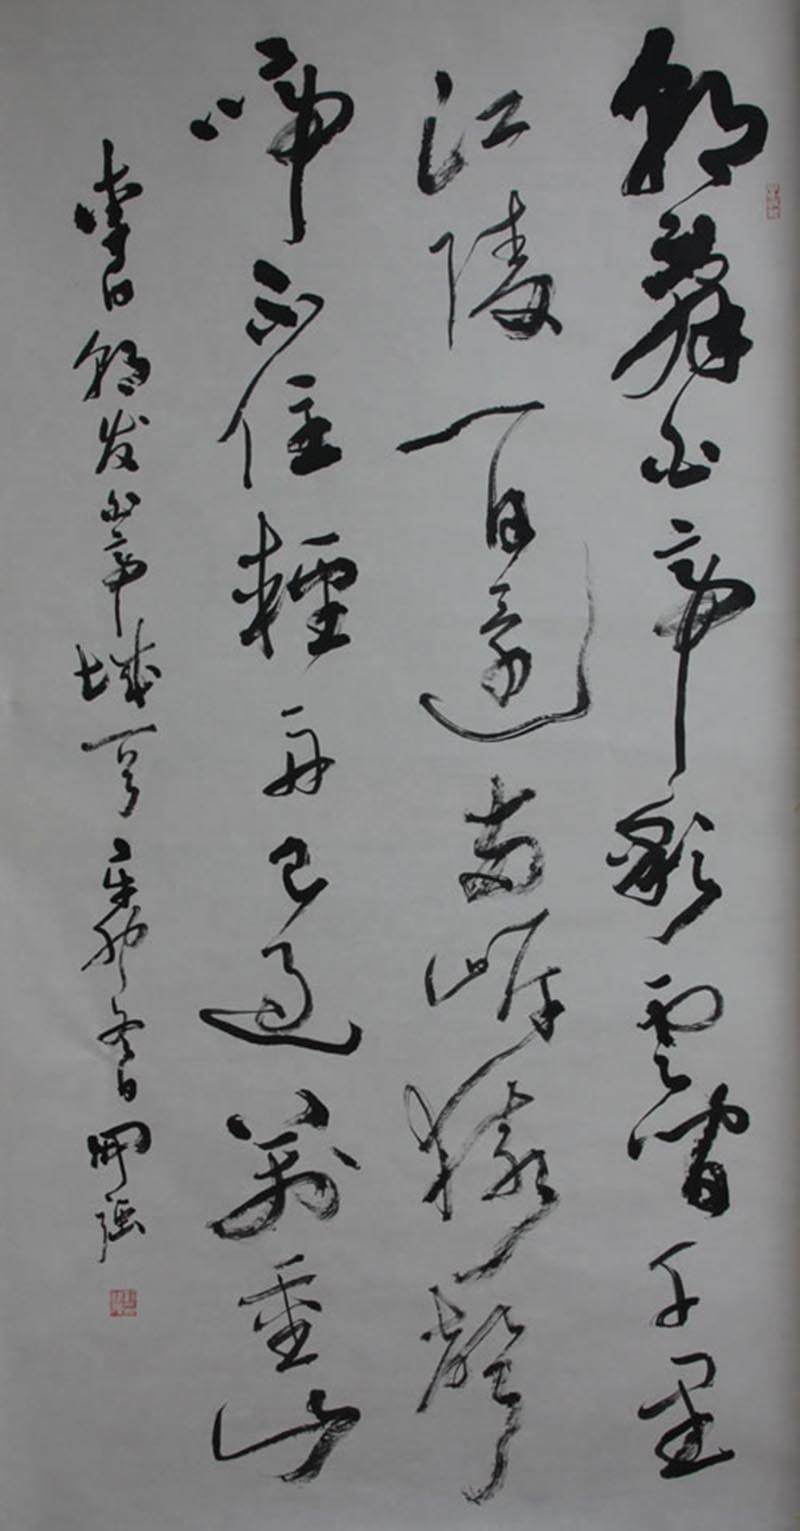 朝辭白帝彩雲間千里
江陵一日還兩岸猿聲
啼不住輕舟已過萬重山
李白朝发白帝城一首辛卯冬日開强